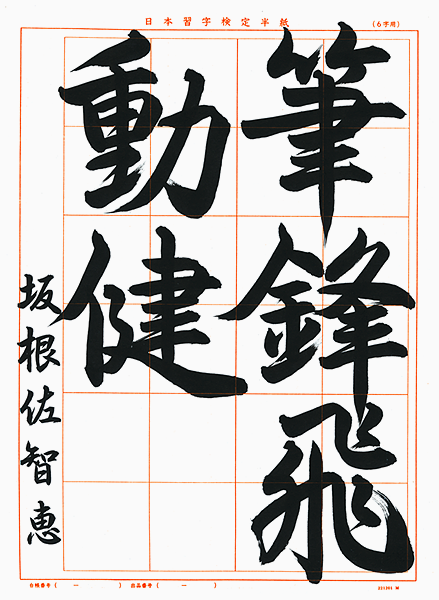 日本習字検定半紙
(6字用)
筆鋒飛
動健
坂根佐智恵
合格番号( ー ) 出品番号( ー )